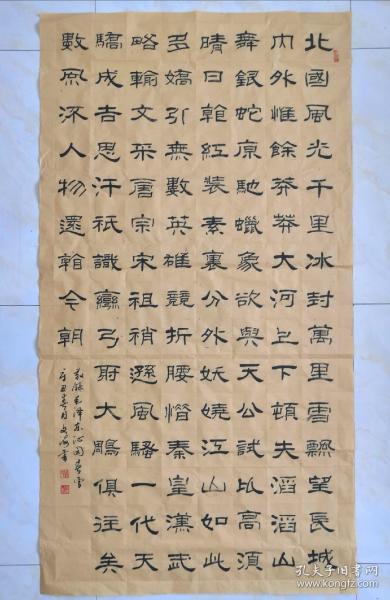 北國風光千里冰封萬里雪飄望長城
內外惟餘莽莽大河上下頓失滔滔山
舞銀蛇原馳蠟象欲與天公試比高須
晴日看紅裝素裹分外妖嬈江山如此
多嬌引無數英雄競折腰惜秦皇漢武
略輸文采唐宗宋祖稍遜風騷一代天
驕成吉思汗祇識彎弓射大鵰俱往矣
數風流人物還看今朝
敬錄毛澤東沁園春雪
辛丑春月文海書
孔夫子旧书网